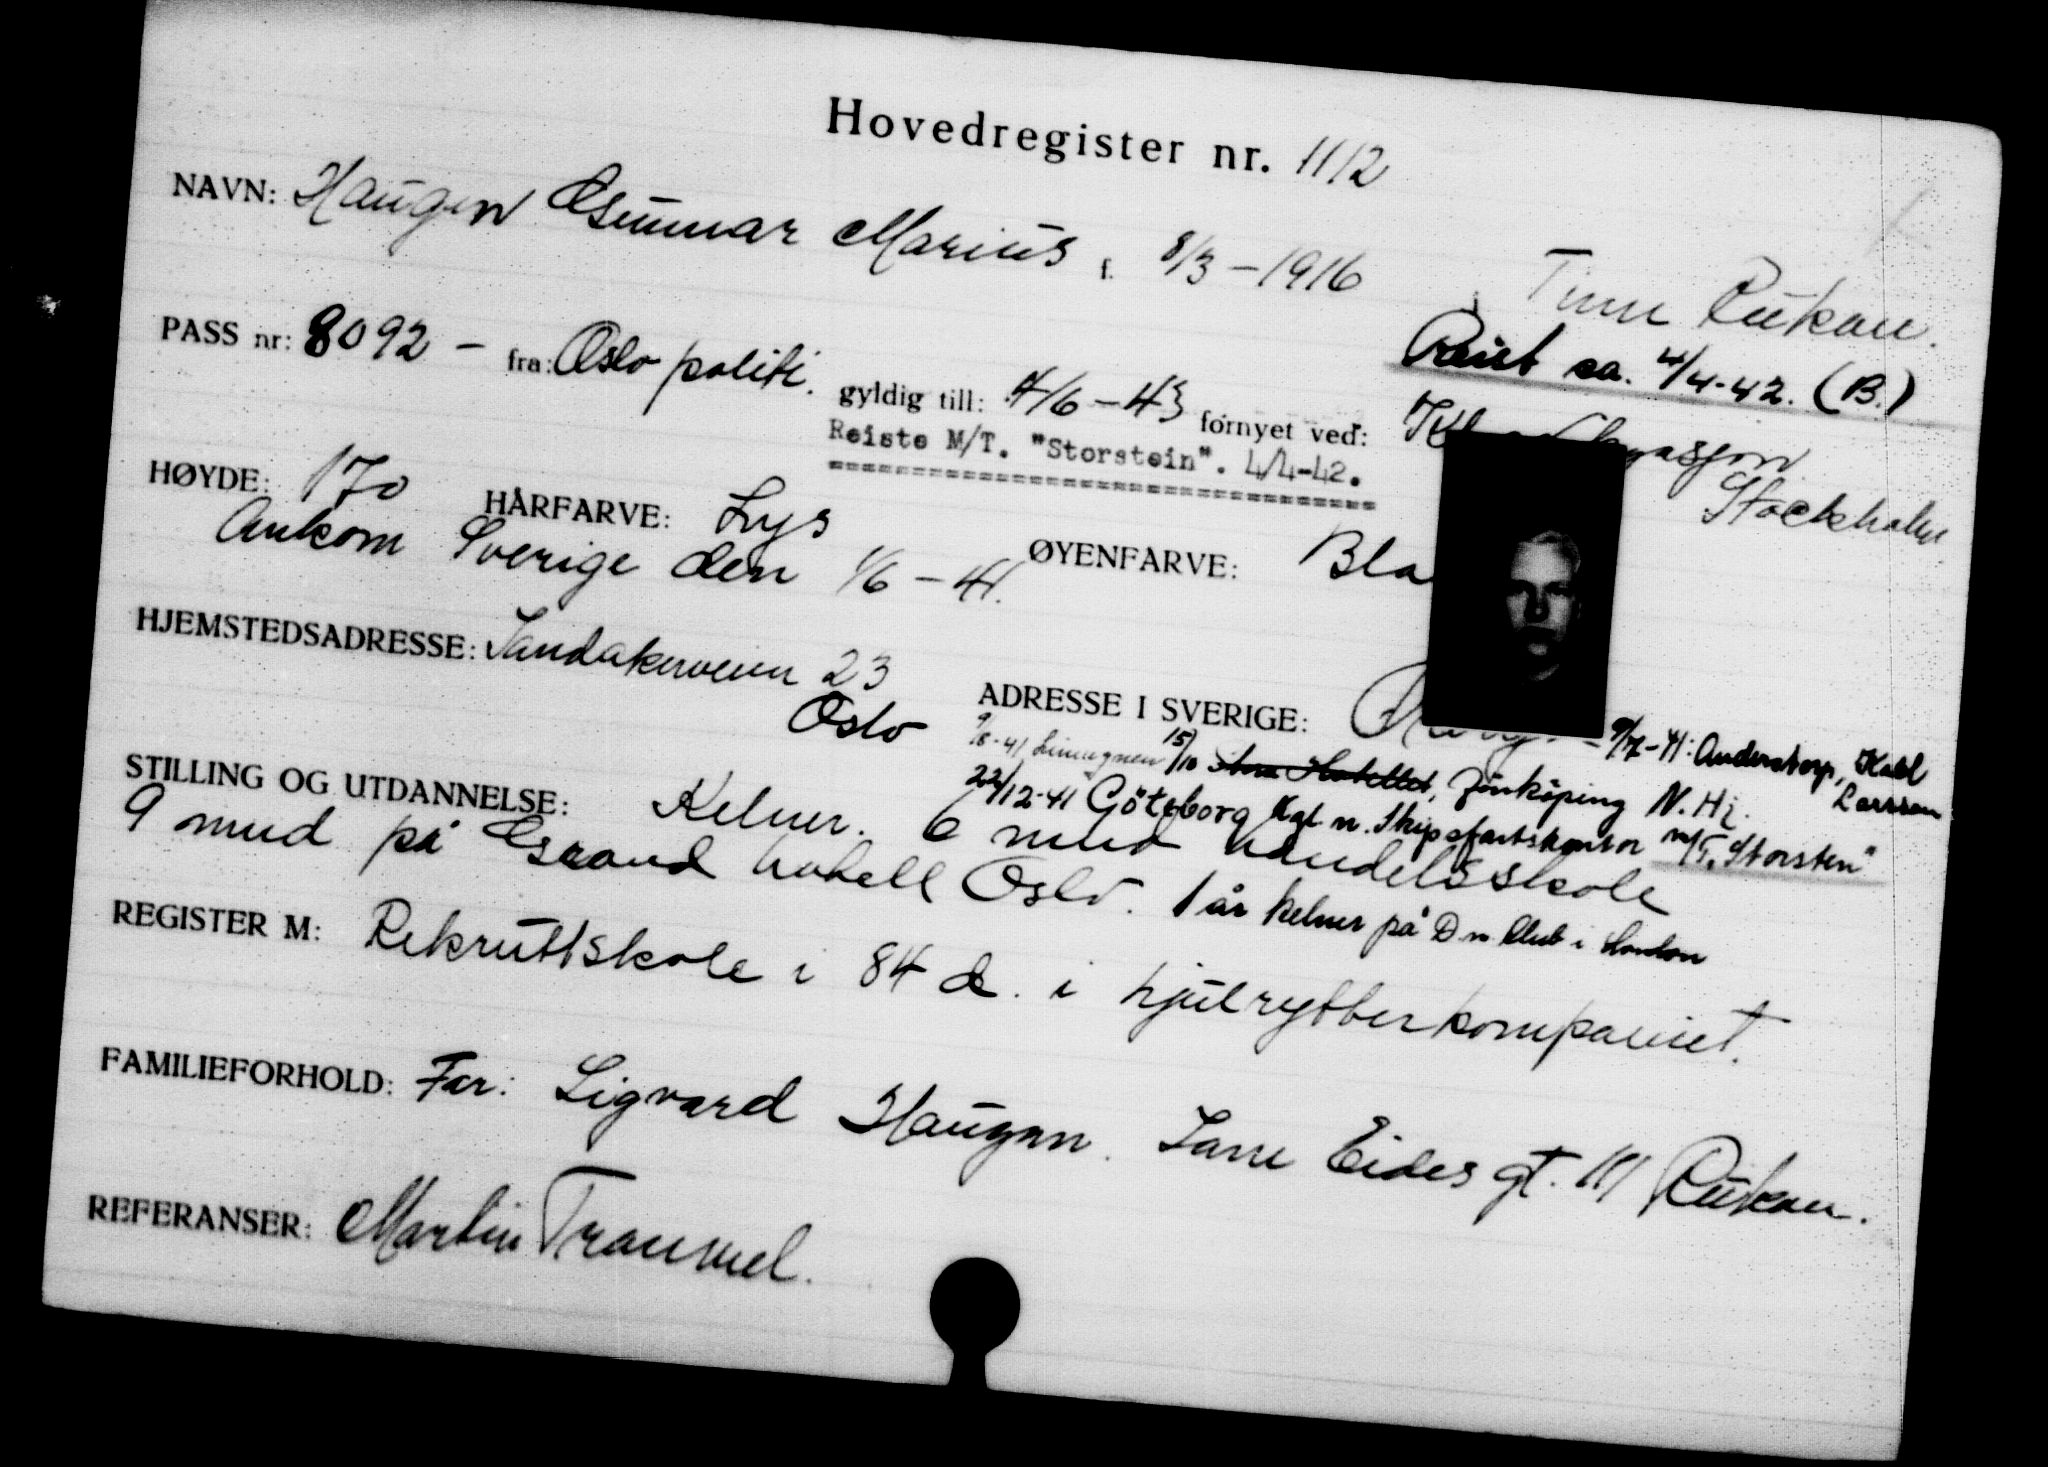 Hovedregister nr. 1112
NAVN: Haugen Gunnar Marius f. 8/3-1916
Tinn Rukan.
Reist sa. 4/4-42. (B.)
PASS nr: 8092 - fra: Oslo politi. gyldig till: 4/6-43 fornyet ved:
Stockholm
Reiste M/T. "Storstein". 4/4-42.
HØYDE: 170 HÅRFARVE: Lys ØYENFARVE: Bla
Ankom Sverige den 1/6-41.
HJEMSTEDSADRESSE: Sandakerveien 23
Oslo
ADRESSE I SVERIGE: 9/7-41: Anderstorp, Karl Larsson
9/8-41 15/10 Hotellet, Jönköping N. Hj.
22/12-41 Göteborg Kgl n. Skipsfartskontor m/T. "Storsten"
STILLING OG UTDANNELSE: Kelner. 6 mnd handelsskole
9 mnd på Grand hotell Oslo. 1 år kelner på D n. Club i London
REGISTER M: Rekruttskole i 84 d. i hjulrytterkompaniet.
FAMILIEFORHOLD: Far: Sigvard Haugen. Sam Eides gt. 111 Rukan.
REFERANSER: Martin Tranmel.